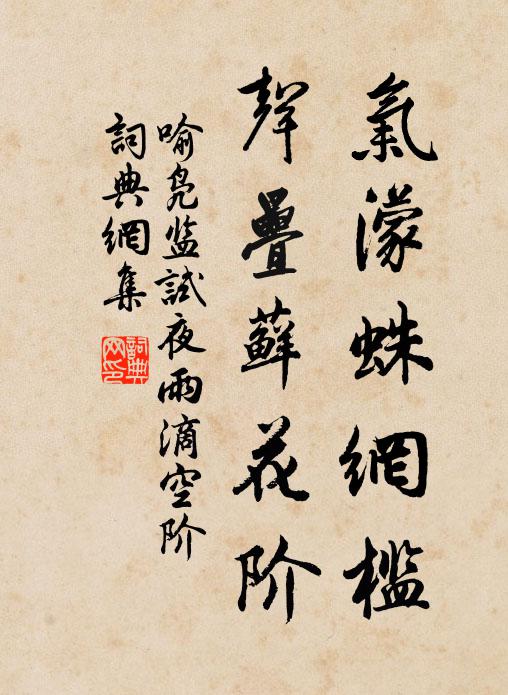 氣濛蛛網檻
聲疊蘚花阶
喻凫监試夜雨滴空阶
詞典網集
詞典网印